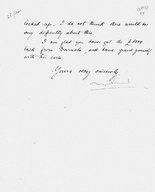 locked-up. I do not think there would be
any difficulty about this.
I am glad you have got the £1000
back from                 , and have spared yourself
with his care.
Yours very sincerely,